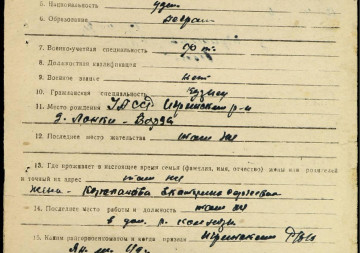 5. Национальность удм.
6. Образование неграм.
7. Военно-учетная специальность
8. Должностная квалификация
9. Военное звание нет
10. Гражданская специальность кузнец
11. Место рождения УАССР Игринский р-н
д. Лонки-Ворцы
12. Последнее место жительства там же
13. Где проживает в настоящее время семья (фамилия, имя, отчество) жены или родителей
и точный их адрес там же
жена - Корепанова Екатерина
14. Последнее место работы и должность там же
в дол. р. колхозы
15. Каким райвоенкоматом и когда призван Игринским РВК